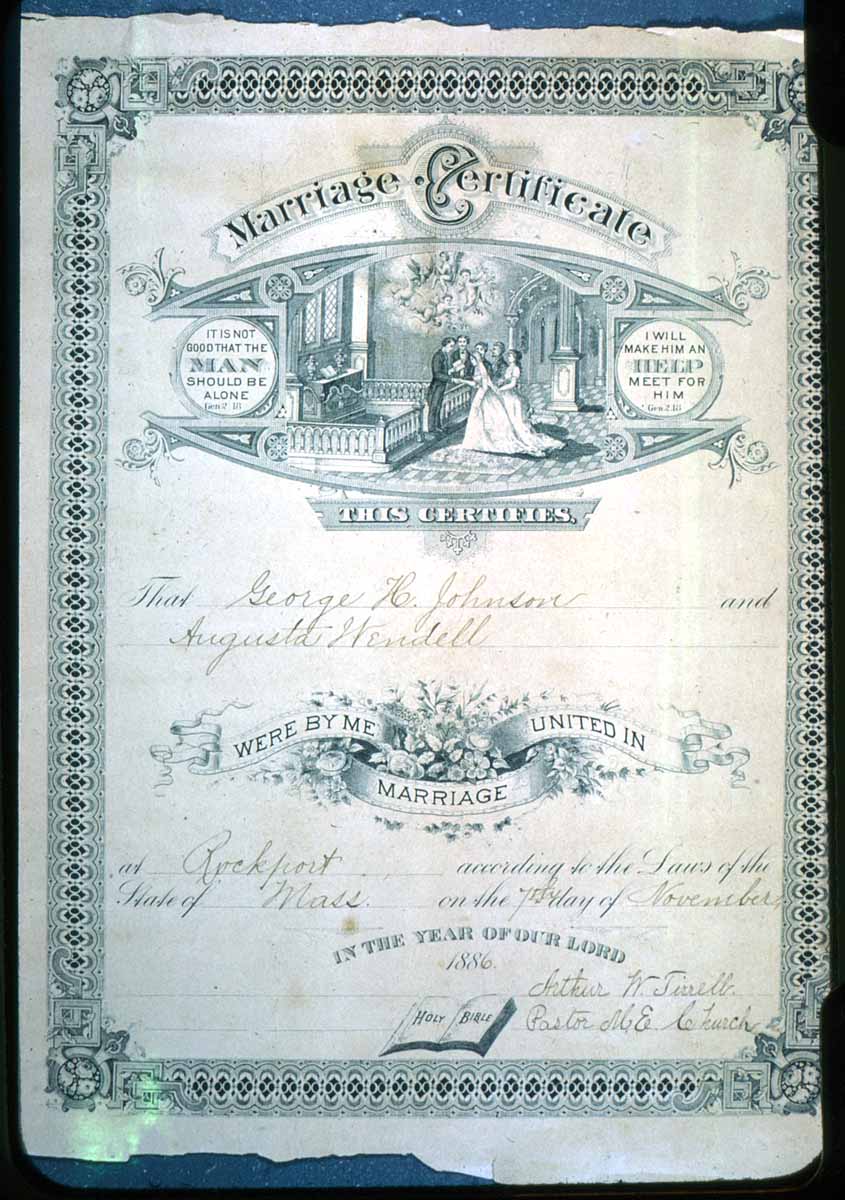 Marriage Certificate
IT IS NOT
GOOD THAT THE
MAN
SHOULD BE
ALONE
Gen 2.18
I WILL
MAKE HIM AN
HELP
MEET FOR
HIM
Gen 2.18
THIS CERTIFIES.
That George H. Johnson and
Augusta Wendell
WERE BY ME UNITED IN
MARRIAGE
at Rockport according to the Laws of the
State of Mass. on the 7th day of November,
IN THE YEAR OF OUR LORD
1886.
Arthur W. Tirrell.
Pastor M. E. Church
HOLY BIBLE